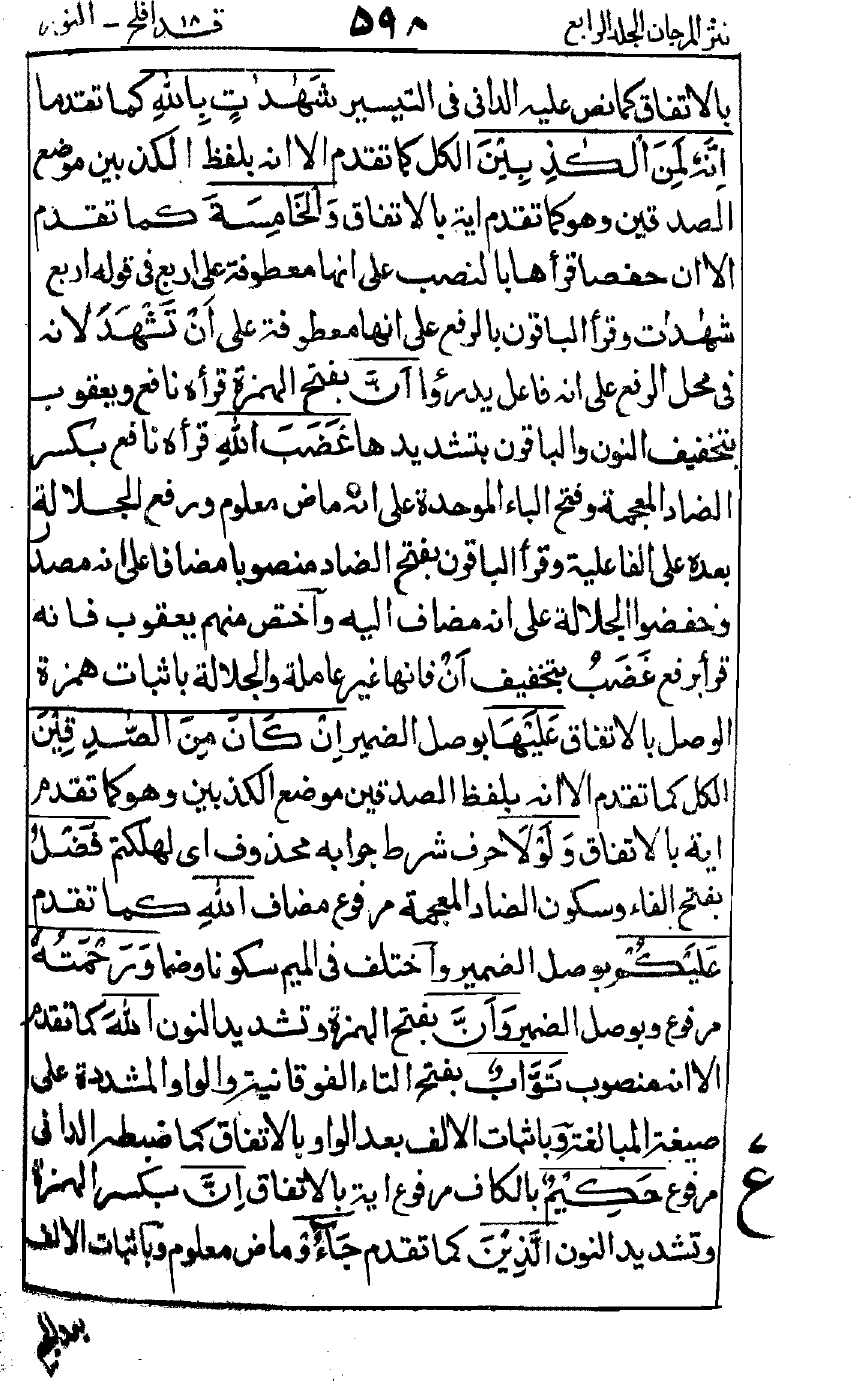 نثر المرجان الجلد الرابع ٥٩٨ قد افلح ١٨ - النور
بالاتفاق كما نص عليه الدانى فى التيسير شَهٰدٰتٍ بِاللّٰهِ كما تقدما
اِنَّهٗ لَمِنَ الْكٰذِبِيْنَ الكل كما تقدم الا انه بلفظ الكذبين موضع
الصدقين وهو كما تقدم اية بالاتفاق وَالْخَامِسَةَ كما تقدم
الا ان حفصا قرأها بالنصب على انها معطوفة على اربع فى قوله اربع
شهٰدٰت وقرأ الباقون بالرفع على انها معطوفة على اَنْ تَشْهَدَ لانه
فى محل الرفع على انه فاعل يدرؤا اَنَّ بفتح الهمزة قرأه نافع ويعقوب
بتخفيف النون والباقون بتشديدها غَضَبَ اللّٰهِ قرأه نافع بكسر
الضاد المعجمة وفتح الباء الموحدة على انه ماض معلوم ورفع الجلالة
بعده على الفاعلية وقرأ الباقون بفتح الضاد منصوبا مضافا على انه مصدر
وخفضوا الجلالة على انه مضاف اليه وآختص منهم يعقوب فانه
قرأ برفع غَضَبُ بتخفيف اَنْ فانها غير عاملة والجلالة باثبات همزة
الوصل بالاتفاق عَلَيْهَا بوصل الضمير اِنْ كَانَ مِنَ الصّٰدِقِيْنَ
الكل كما تقدم الا انه بلفظ الصدقين موضع الكذبين وهو كما تقدم
اية بالاتفاق وَلَوْلَا حرف شرط جوابه محذوف اى لهلكتم فَضْلُ
بفتح الفاء وسكون الضاد المعجمة مرفوع مضاف اللّٰهِ كما تقدم
عَلَيْكُمْ بوصل الضمير وآختلف فى الميم سكونا وضما وَرَحْمَتُهٗ
مرفوع وبوصل الضمير وَاَنَّ بفتح الهمزة وتشديد النون اللّٰهَ كما تقدم
الا انه منصوب تَوَّابٌ بفتح التاء الفوقانية والواو المشددة على
صيغة المبالغة وباثبات الالف بعد الواو بالاتفاق كما ضبطه الدانى
مرفوع حَكِيْمٌ بالكاف مرفوع اية بالاتفاق اِنَّ بكسر الهمزة
وتشديد النون الَّذِيْنَ كما تقدم جَاءُوْ ماض معلوم وباثبات الالف
ع
بعد الجيم